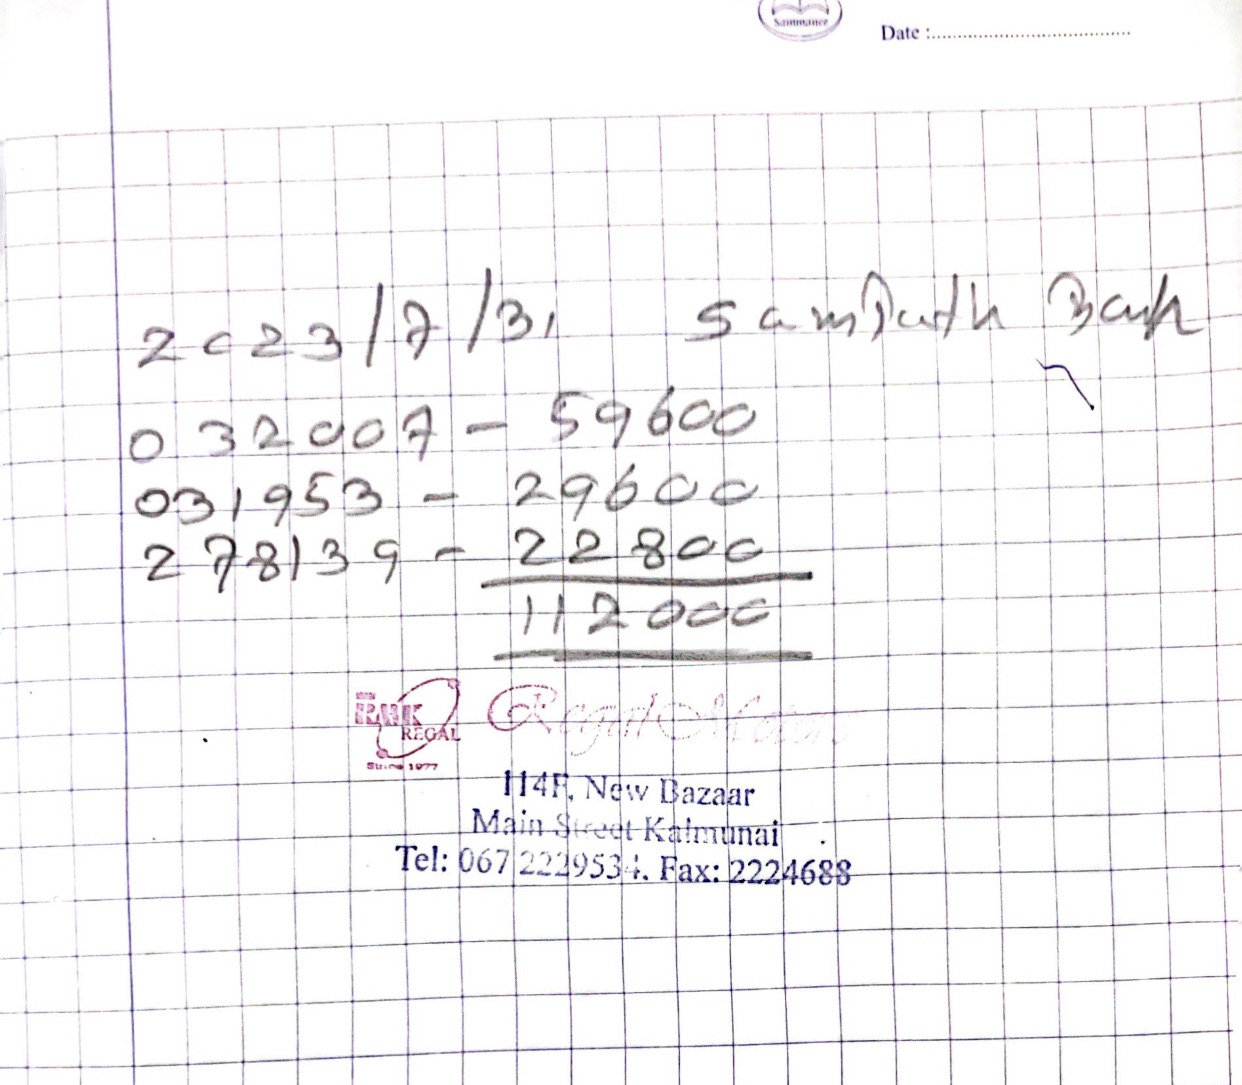 Sammanee
Date :......................................
2023/7/31 Sampath Bank
032007 - 59600
031953 - 29600
278139 - 22800
112000
REGAL
Since 1977
Regal
114F, New Bazaar
Main Street Kalmunai
Tel: 067 2229534. Fax: 2224688